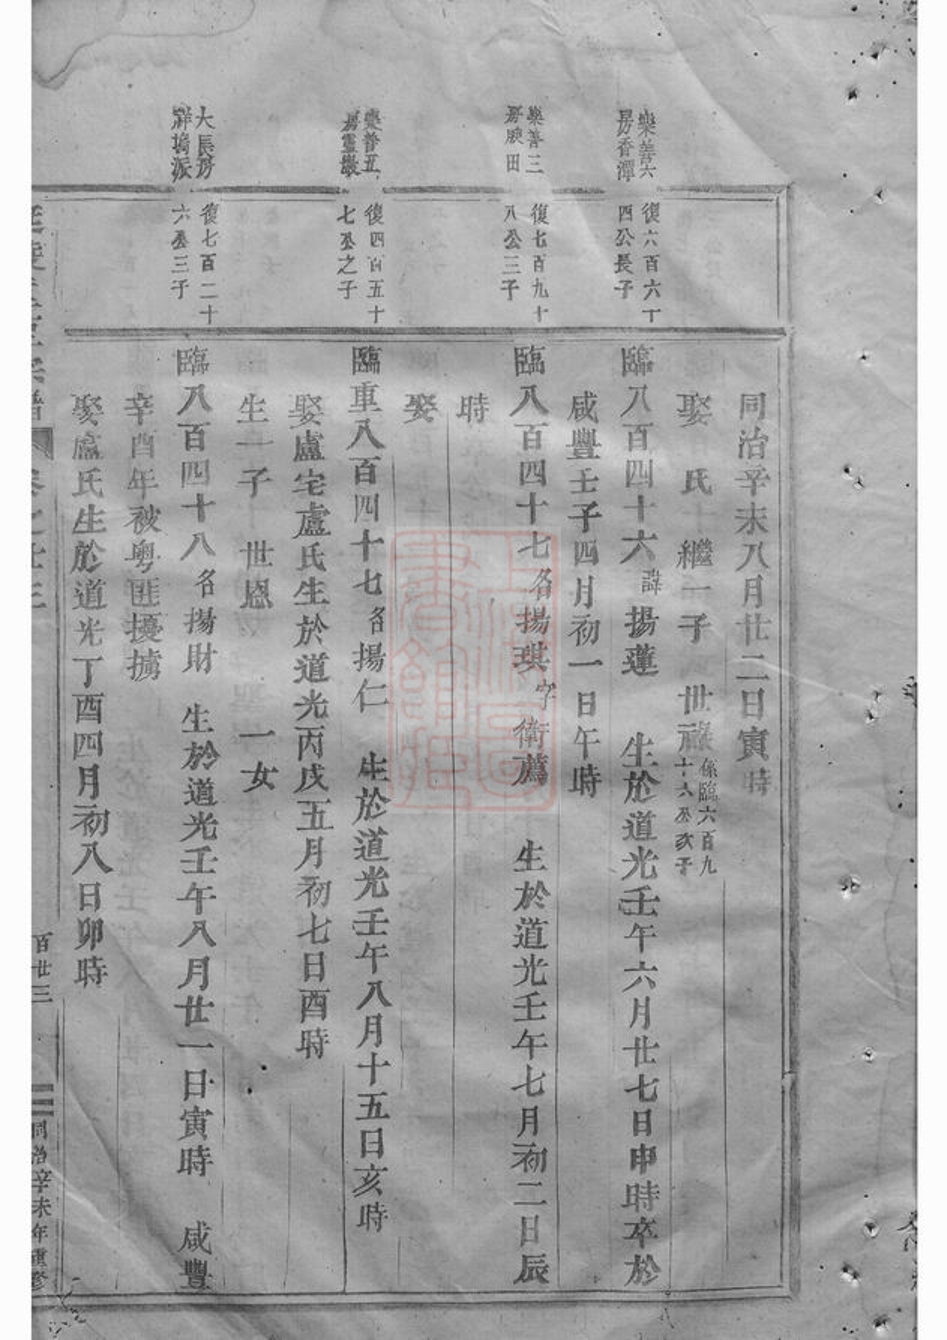 同治辛未八月廿二日寅時
娶 氏 繼一子 世 係臨六百九十六公次子
樂善六房香潭
復六百六十四公長子
臨八百四十六 諱揚蓮 生於道光壬午六月廿七日申時卒於
咸豐壬子四月初一日午時
樂善三房 田
復七百九十八公三子
臨八百四十七 名揚琪 字衛薦 生於道光壬午七月初二日辰
時
娶
樂善五房靈巖
復四百五十七公之子
臨重八百四十七 名揚仁 生於道光壬午八月十五日亥時
娶盧宅盧氏生於道光丙戌五月初七日酉時
生一子 世恩 一女
大長房 派
復七百二十六公三子
臨八百四十八 名揚財 生於道光壬午八月廿一日寅時 咸豐
辛酉年被粵匪擾擄
娶盧氏生於道光丁酉四月初八日卯時
卷之廿三
百廿三
同治辛未年重修